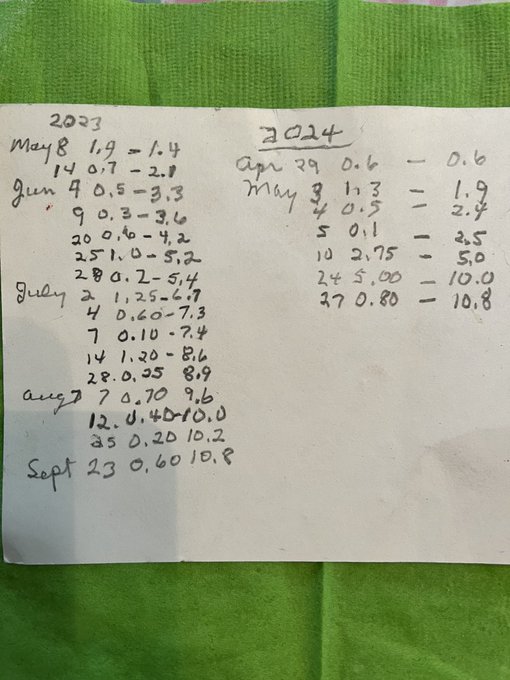 2023
May 8 1.9 - 1.4
14 0.7 - 2.1
Jun 9 0.5 - 3.3
9 0.3 - 3.6
20 0.6 - 4.2
25 1.0 - 5.2
28 0.2 - 5.4
July 2 1.25 - 6.7
4 0.60 - 7.3
7 0.10 - 7.4
14 1.20 - 8.6
28. 0.25 8.9
Aug 7 0.70 9.6
12. 0.40 - 10.0
25 0.20 10.2
Sept 23 0.60 10.8
2024
Apr 29 0.6 - 0.6
May 3 1.3 - 1.9
4 0.5 - 2.4
5 0.1 - 2.5
10 2.75 - 5.0
24 5.00 - 10.0
27 0.80 - 10.8